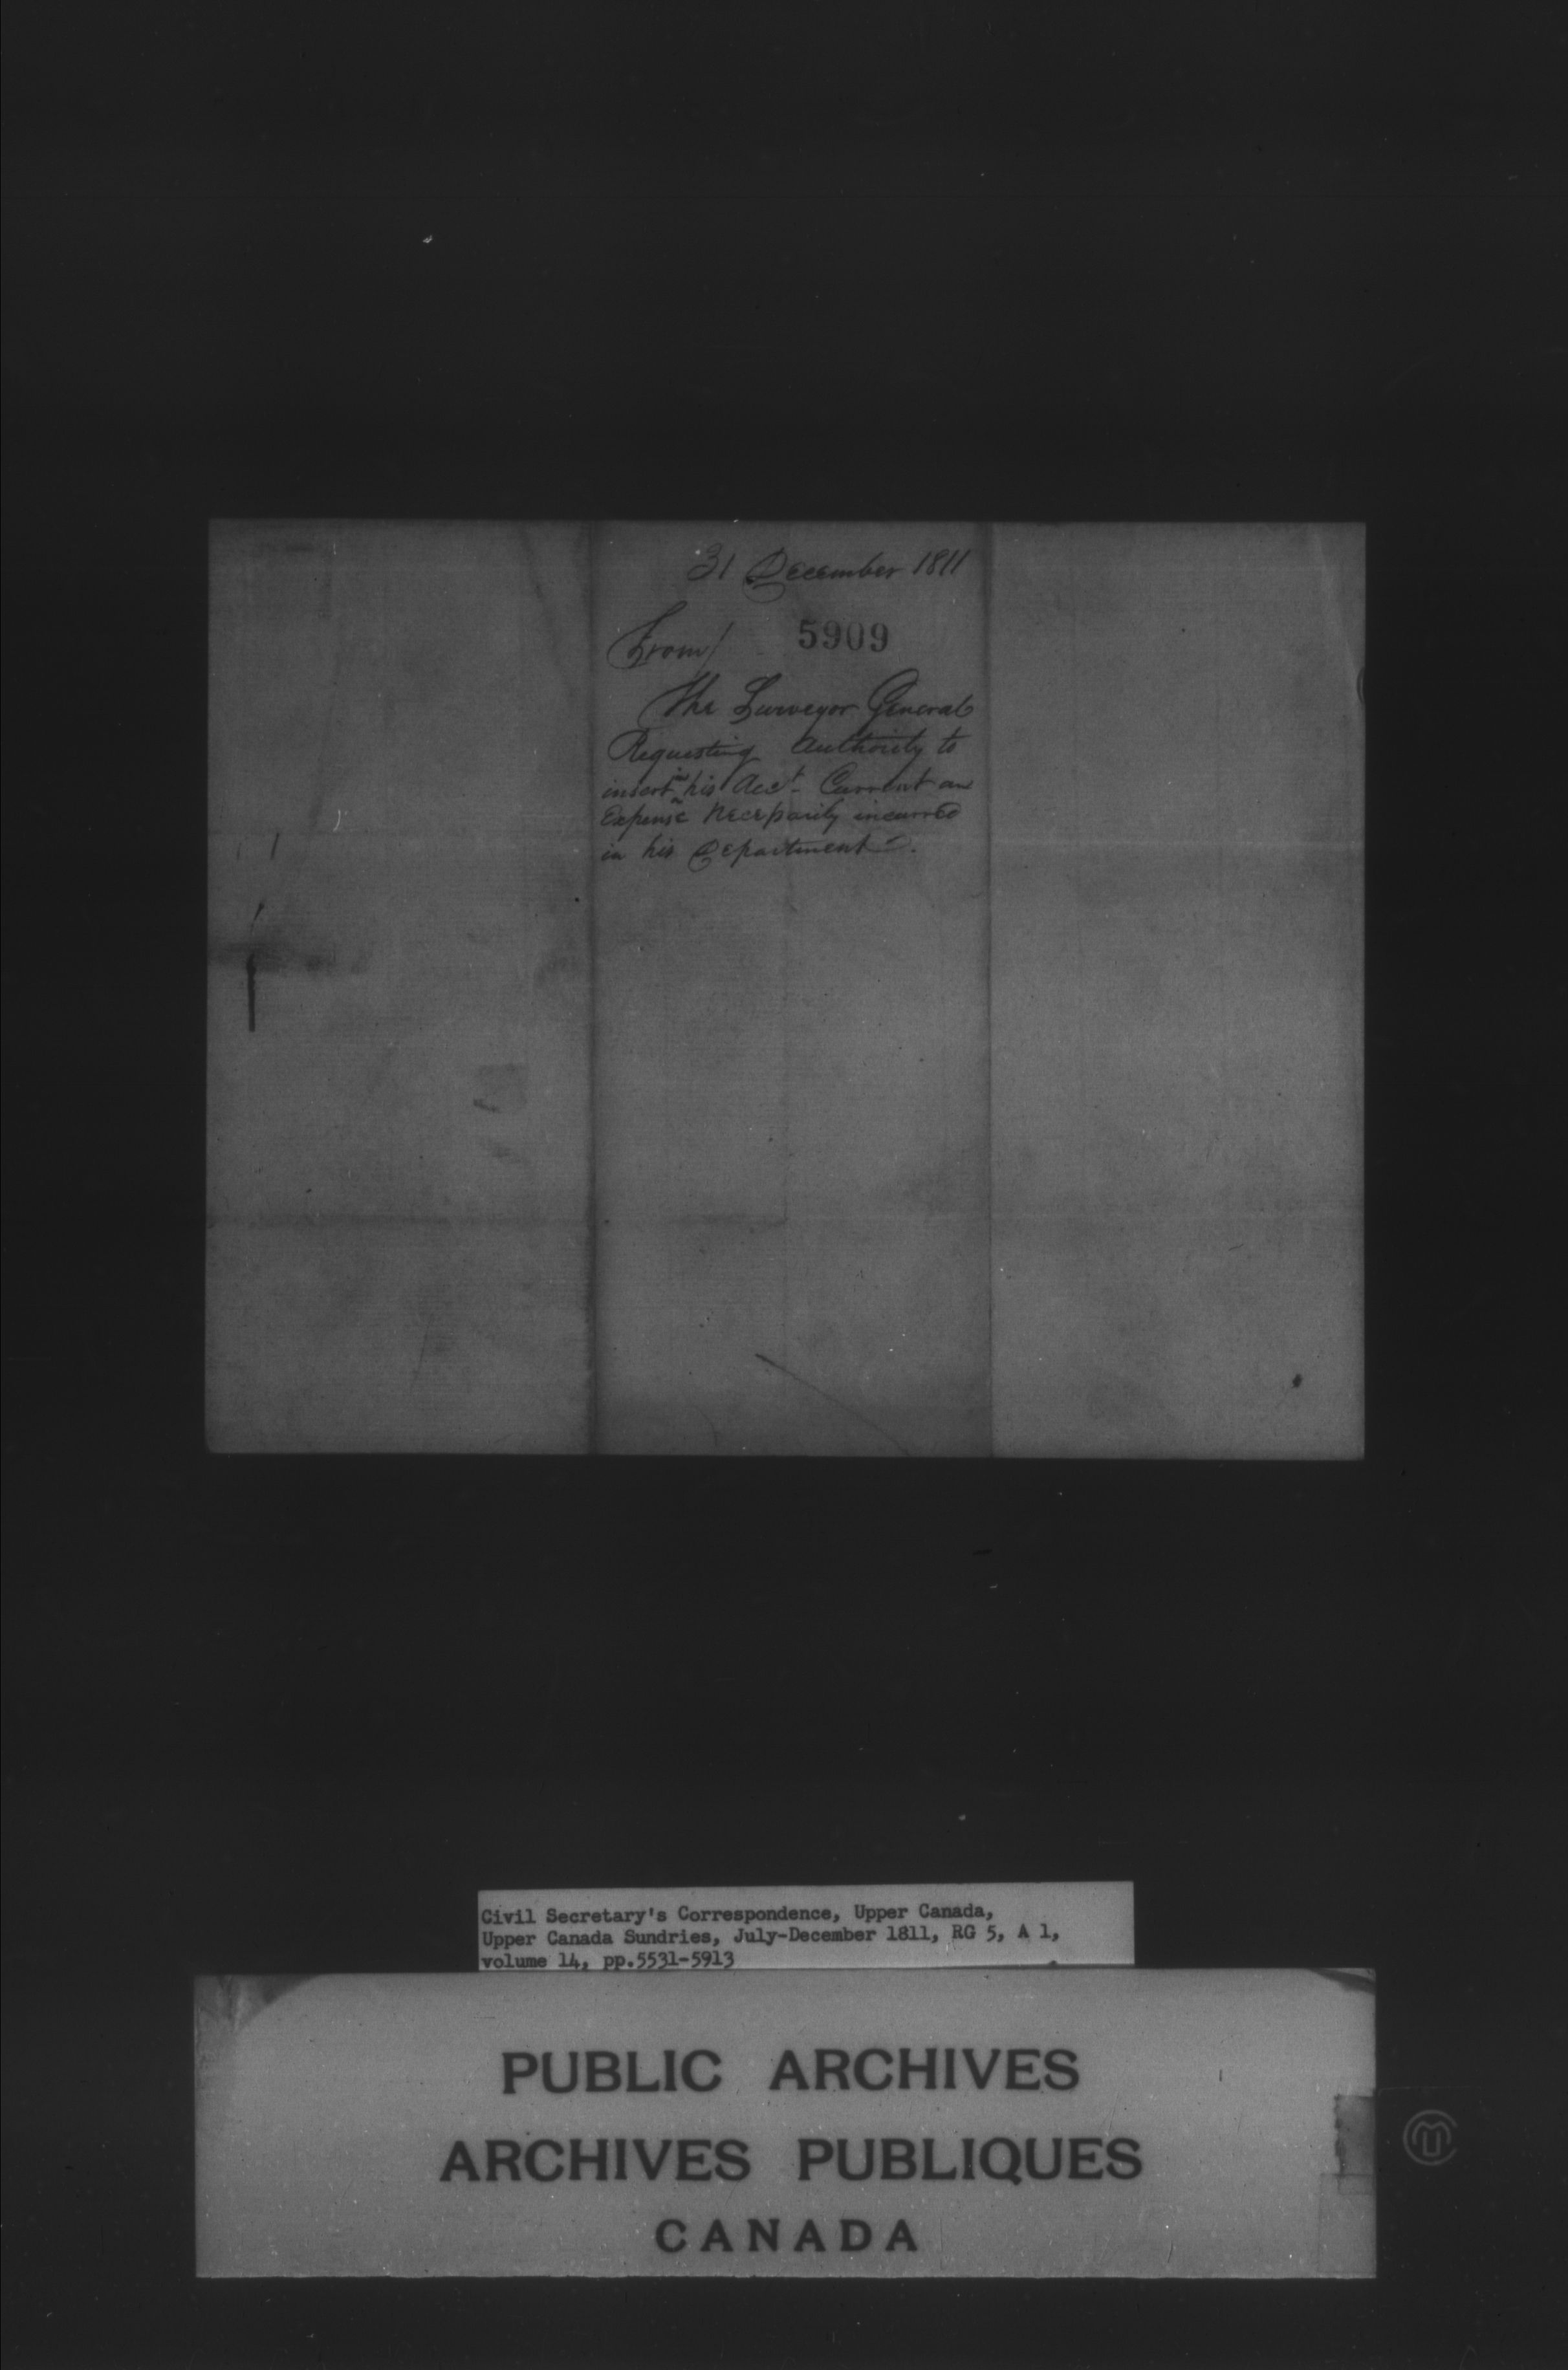 31 December 1811
5909
From/
The Surveyor General
Requesting Authority to
insert in his Acct. Current an
Expense Necessarily incurred
in his Department.
Civil Secretary's Correspondence, Upper Canada,
Upper Canada Sundries, July-December 1811, RG 5, A 1,
volume 14, pp.5531-5913
PUBLIC ARCHIVES
ARCHIVES PUBLIQUES
CANADA